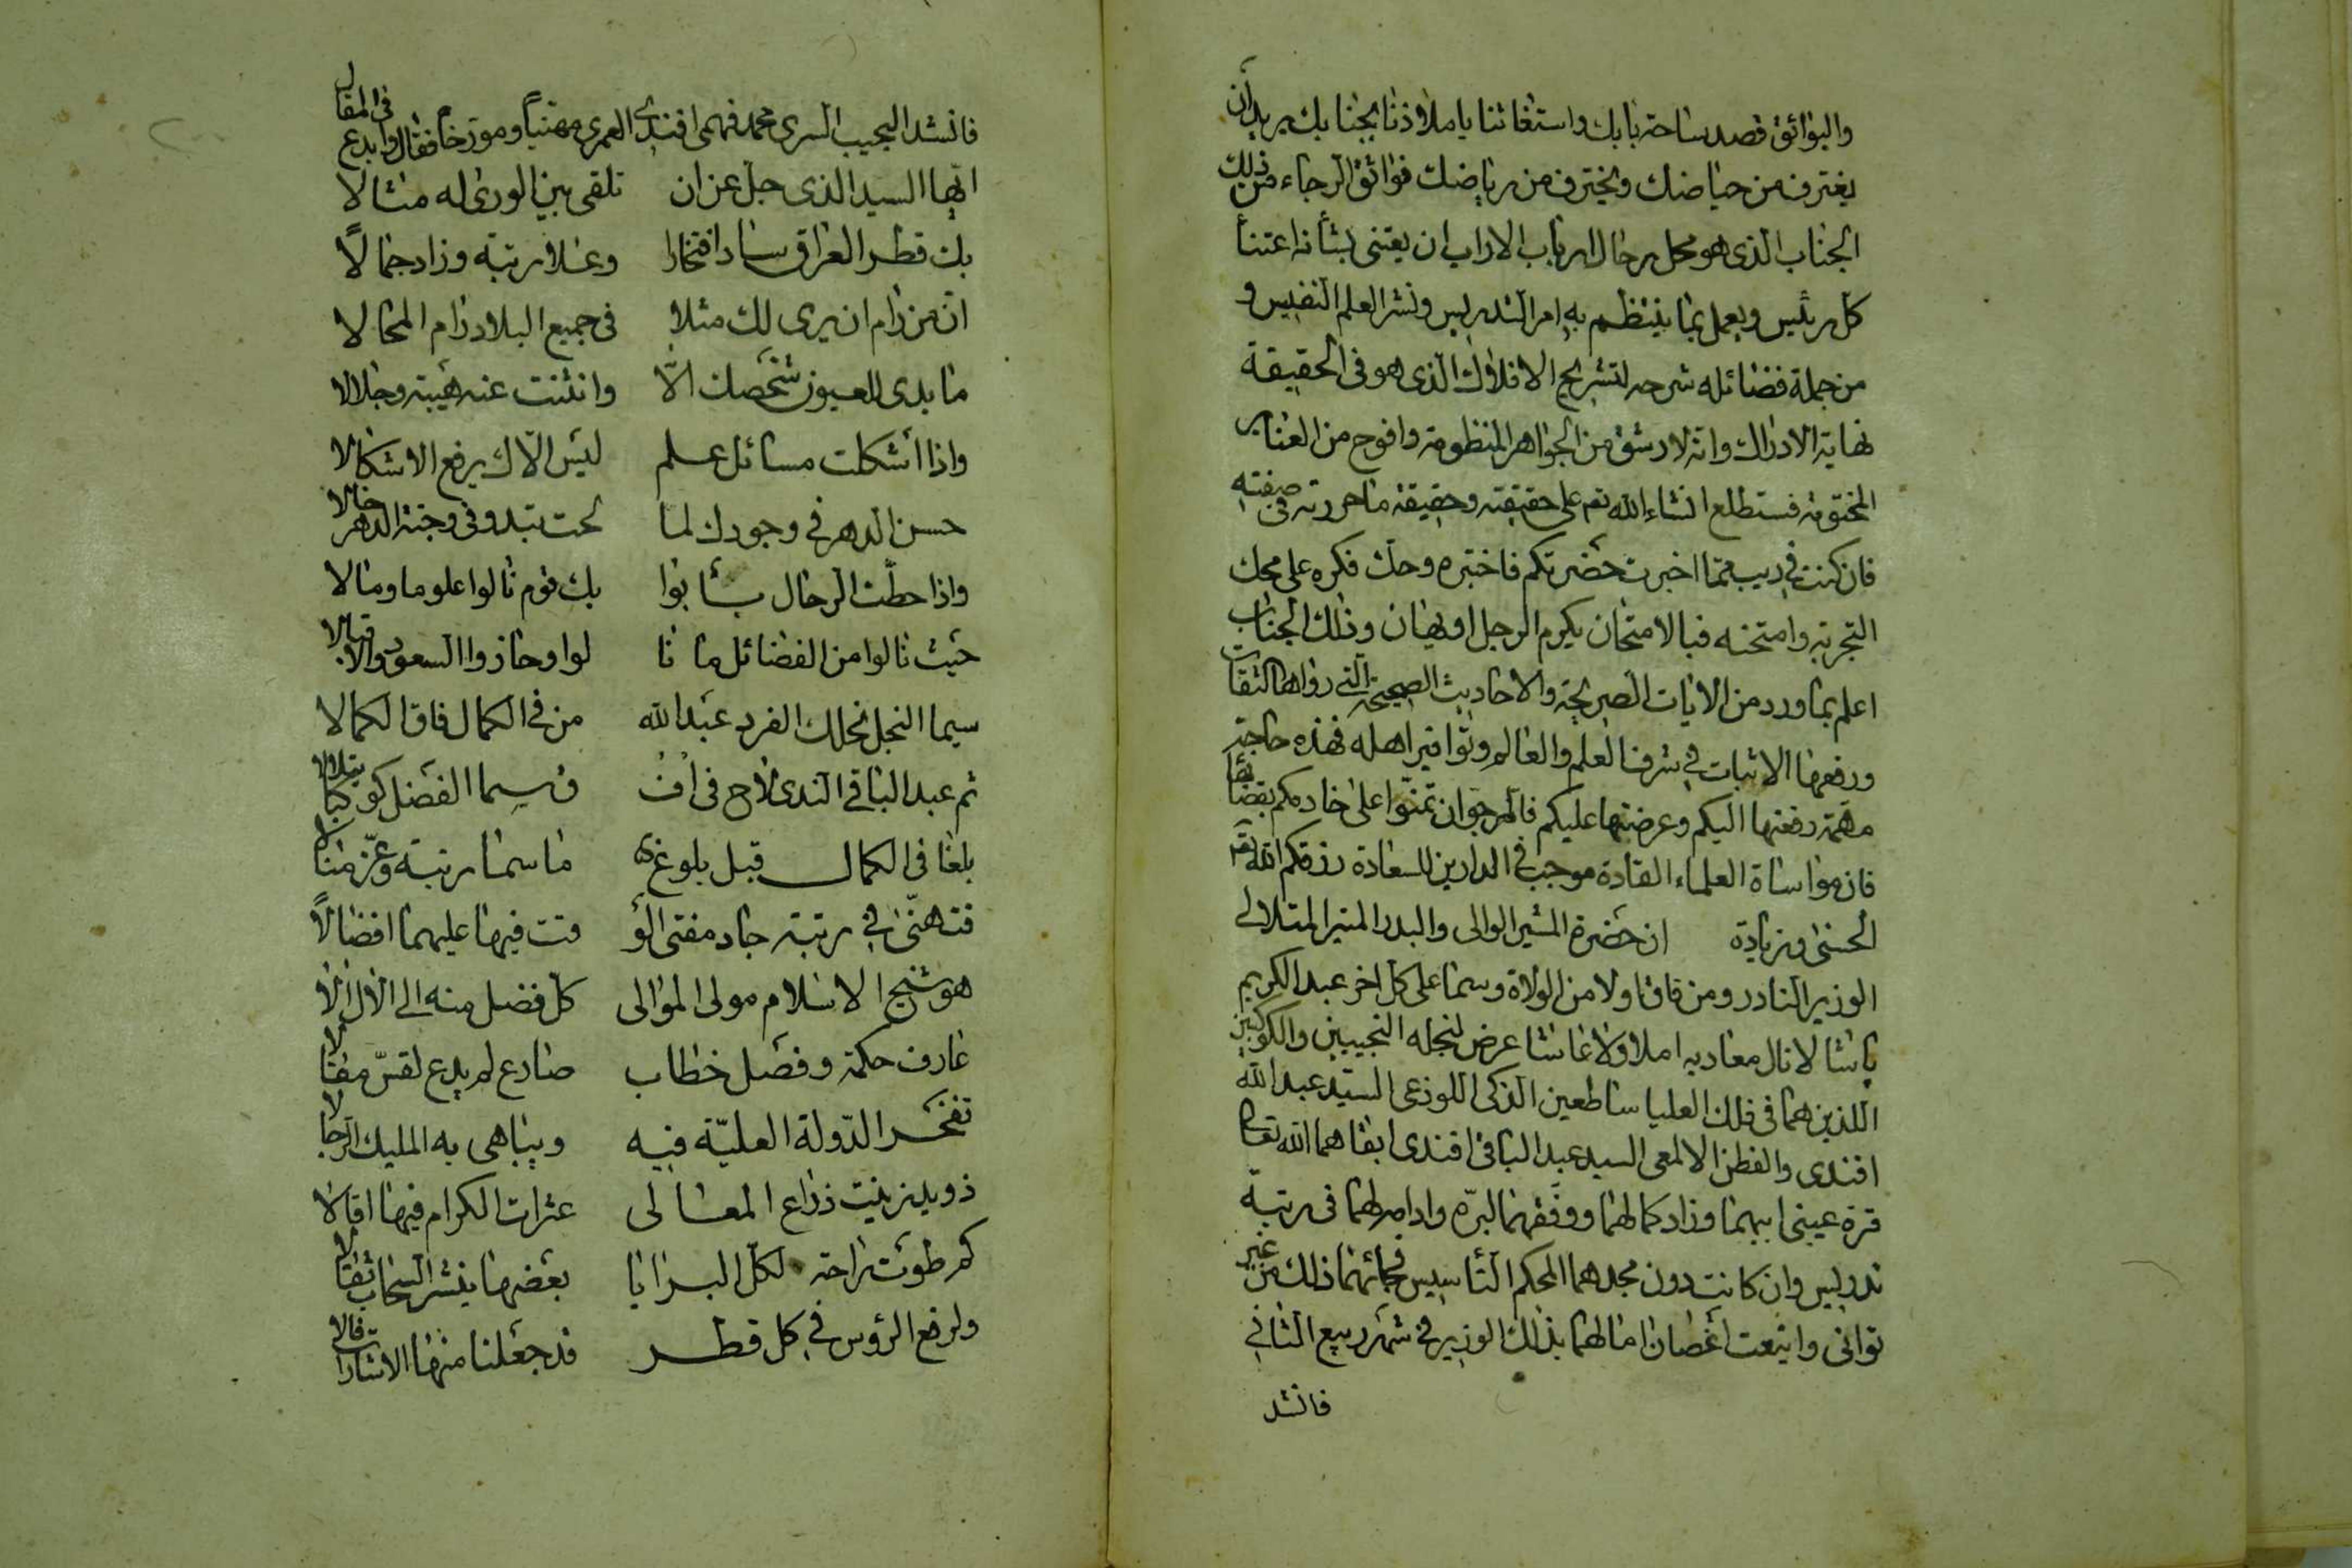 والبوائق قصد ساحة بابك واستغاثنا يا ملاذنا بجنابك يريد ان
يغترف من حياضك ويخترف من رياضك فواثق الرجاء من ذلك
الجناب الذى هو محل رحال ارباب الاراب ان يعتنى بشأنه اعتنأ
كل رئيس ويعمل بما ينتظم به امر التدريس ونشر العلم النفيس و
من جملة فضائله شرحه لتشريح الافلاك الذى هو فى الحقيقة
نهاية الادراك وانه لارشق من الجواهر المنظومة وافوح من العنابر
المختومة فستطلع انشاء الله تعم على حقيقته وحقيقة ما حررته فى صفته
فان كنت فى ريب مما اخبرت حضرتكم فاختبره وحك فكره على محك
التجربة وامتحنه فبالامتحان يكرم الرجل او يهان وذلك الجناب
اعلم بما ورد من الايات الصريحة والاحاديث الصحيحة التى رواها الثقات
ورفعها الاثبات فى شرف العلم والعالم وتوافير اهله فهذه حاجة
مهمة رفعتها اليكم وعرضتها عليكم فالمرجو ان تمنوا على خادمكم بقضائها
فان مواساة العلماء القادة موجب فى الدارين للسعادة رزقكم الله تعم
الحسنى وزيادة ان حضرة المشير الوالى والبدر المنير المتلالى
الوزير النادر ومن فاق اولا من الولاة وسما على كل اخر عبد الكريم
باشا لا نال معاديه املا ولا غاشا عرض لنجله النجيبين والكوكبين
اللذين هما فى فلك العليا ساطعين الذكى اللوذعى السيد عبد الله
افندى والفطن الالمعى السيد عبد الباقى افندى ابقاهما الله تعالى
قرة عينى ابيهما وزاد كمالهما ووفقهما لبره وادام لهما فى رتبة
تدريس وان كانت دون مجدهما المحكم التأسيس فجائهما ذلك من غير
توانى واينعت اغصان امالهما بذلك الوزير فى شهر ربيع الثانى
فانشد
فانشد النجيب السرى محمد فهمى افندى العمرى مهنياً ومورخاً فقال وابدع فى المقال
ايها السيد الذى جل عن ان تلقى بين الورى له مثالا
بك قطر العراق ساد افتخارا وعلا رتبة وزاد جمالاً
ان من رام ان يرى لك مثلا فى جميع البلاد رام المحالا
ما بدى للعيون شخصك الّا وانثنت عنه هيبة وجلالا
واذا اشكلت مسائل علم ليس الّاك يرفع الاشكالا
حسن الدهر فى وجودك لما لحت تبدو فى وجنة الدهر خالا
واذا حطّت الرحال بابوا بك قوم نالوا علوما ومالا
حيث نالوا من الفضائل ما نا لوا وحازوا السعود والاقبالا
سيما النجل نجلك الفرد عبد الله من فى الكمال فاق الكمالا
ثم عبد الباقى الندى لاح فى اف ق سما الفضل كوكبا يتلالا
بلغا فى الكمال قبل بلوغ ما سما رتبة وعزّ منالا
فتهنّى فى رتبة جاد مفتى الو قت فيها عليهما افضالاً
هو شيخ الاسلام مولى الموالى كل فضل منه الى الال الا
عارف حكمة وفصل خطاب صادع لم يدع لقسّ مقالا
تفخر الدّولة العليّة فيه ويباهى به المليك الرجالا
ذو يد زينت ذراع المعالى عثرات الكرام فيها اقالا
كم طوت راحة لكل البرايا بعضها ينشر السحاب ثقالا
ولرفع الرؤس فى كل قطر قد جعلنا منها الاشارات فالا